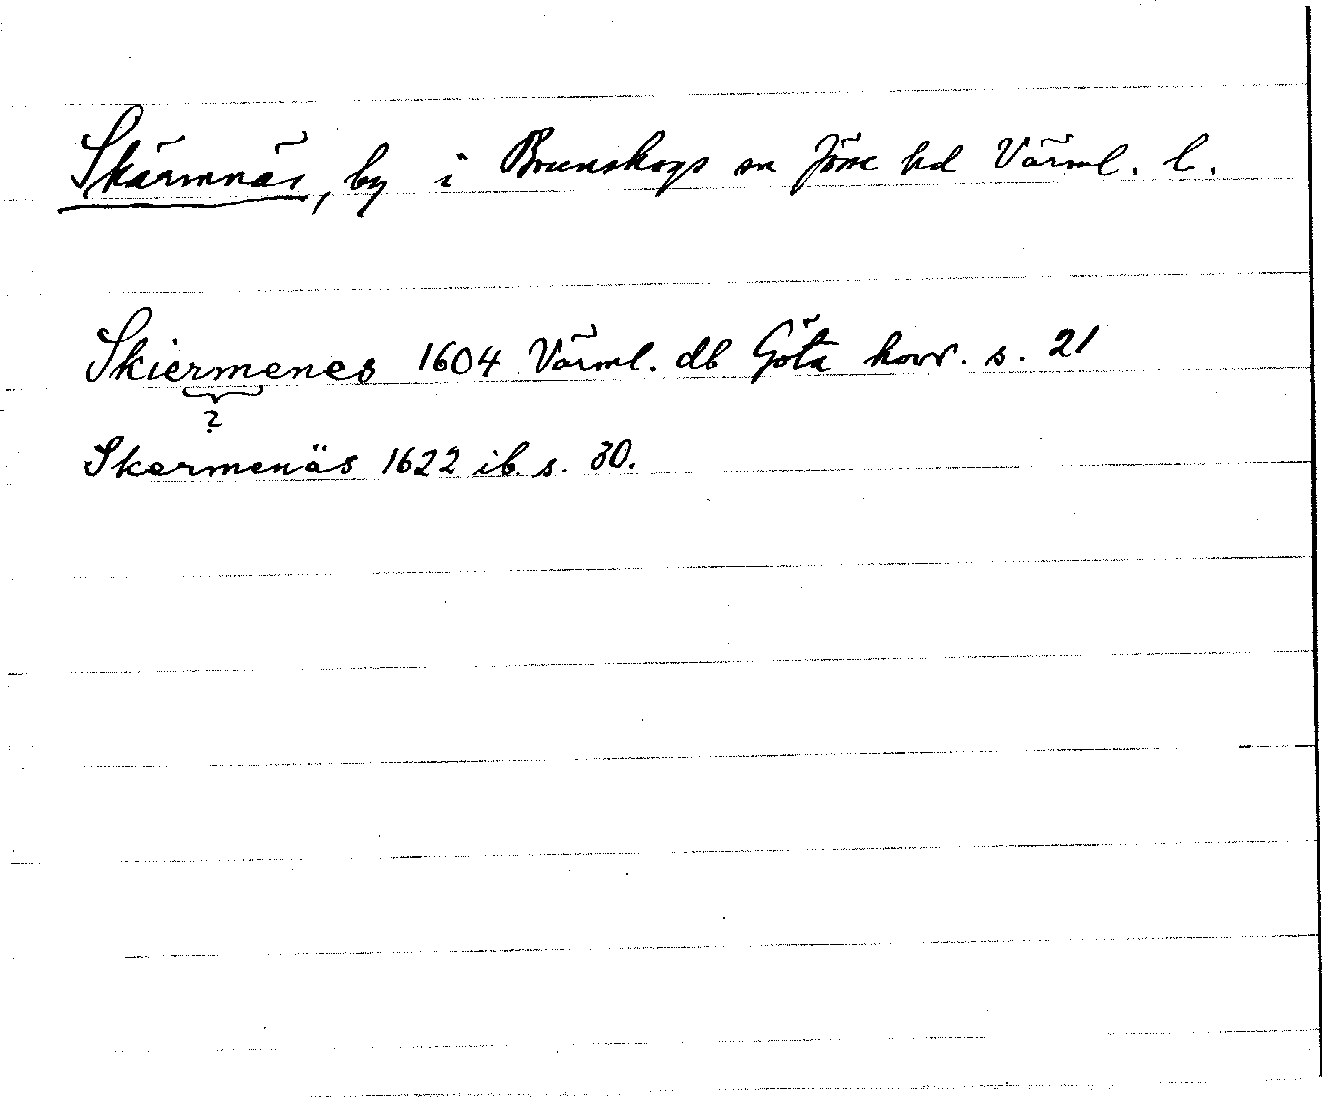 Skärmnäs, by i Brunskogs sn Jösse hd Värml. l.
Skiermenes 1604 Värml. db Göta hovr. s. 21
?
Skermenäs 1622 ib. s. 30.